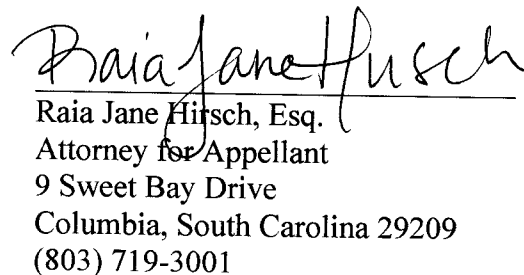 Raia Jane Hirsch
Raia Jane Hirsch, Esq.
Attorney for Appellant
9 Sweet Bay Drive
Columbia, South Carolina 29209
(803) 719-3001